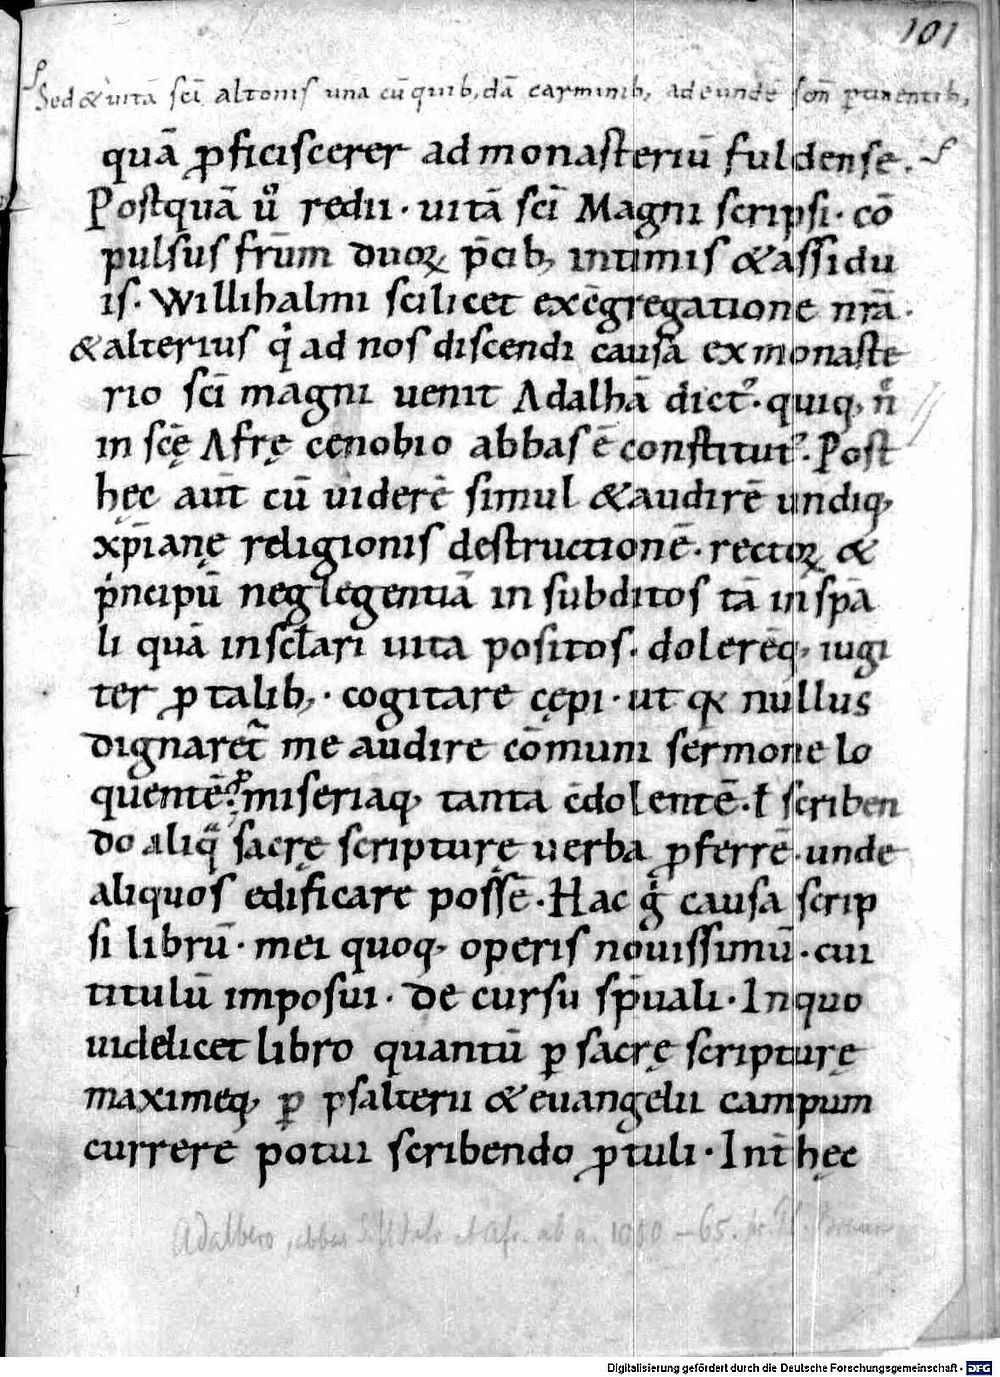 101
Sed & uitā sci̅ altonis una cū quib;dā carminib; ad eundē scm̅ ꝑtinentib;
quā ꝓficiscerer ad monasteriū fuldense.
Postquā ū redii · uitā sci̅ Magni scripsi · cō
pulsus frūm duoꝝ p̄cib; intimis & assidu
is. Willihalmi scilicet ex cōgregatione nr̄a ·
& alterius qͥ ad nos discendi causa ex monaste
rio sci̅ magni uenit Adalhā dictꝰ · quiq; nͨ
in scę̄ Afrę cenobio abbas ē constitutꝰ. Post
hęc aūt cū uiderē simul & audirē undiq;
xp̄ianę religionis destructionē · rectoꝝ &
pͥncipū neglegentiā in subditos tā in sp̄a
li quā in sclari uita positos. dolerēq; iugi
ter ꝓ talib; · cogitare cępi · ut qͣ nullus
dignaret̄ me audire cōmuni sermone lo
quentē miseriaq; tanta cōdolentē · ł scriben
do aliqͣ sacrę scripturę uerba ꝓferrē · unde
aliquos edificare possē · Hac gͥ causa scrip
si librū · mei quoq; operis nouissimū · cui
titulū imposui · De cursu sp̄uali · In quo
uidelicet libro quantū ꝑ sacrę scripturę
maximeq; ꝑ psalterii & euangelii campum
currere potui scribendo ꝓtuli · Int̄ hęc
Adalbero, abbas et Afr. ab a. 1060 – 65.
Digitalisierung gefördert durch die Deutsche Forschungsgemeinschaft - DFG